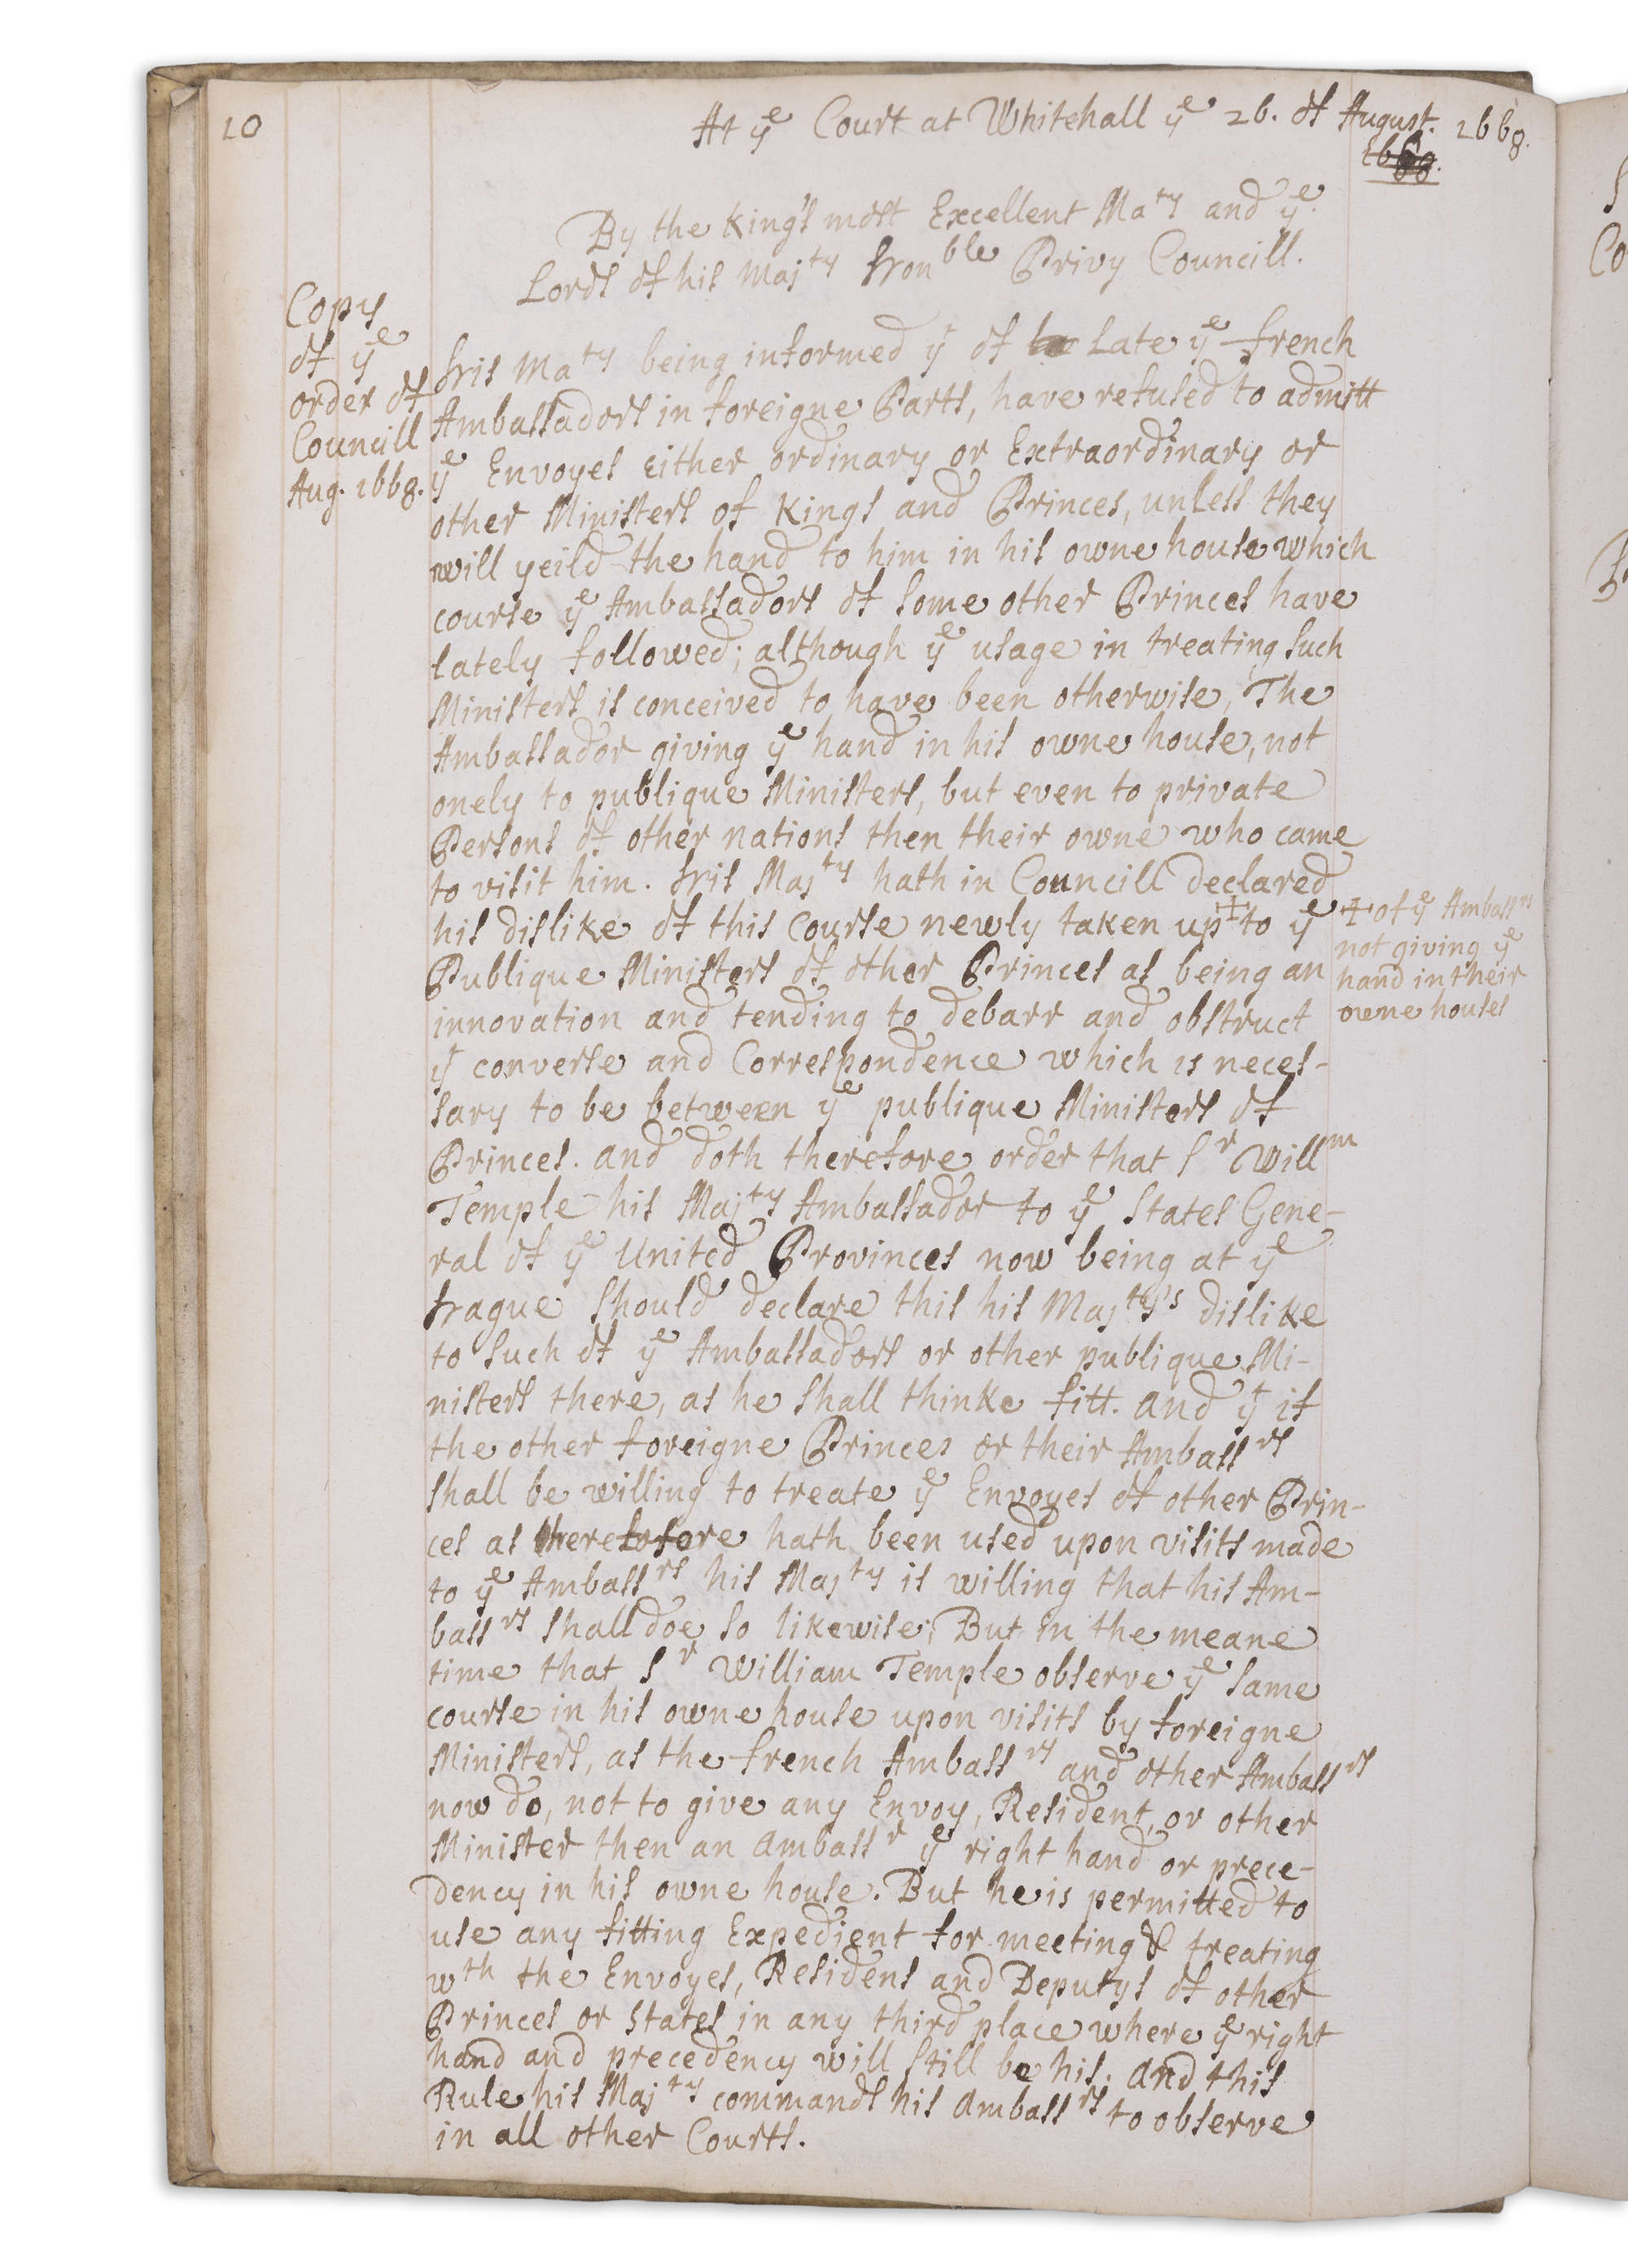 10
At yᵉ Court at Whitehall yᵉ 26. of August. 1668.
1668.
By the King's most Excellent Maᵗʸ and yᵉ
Lords of his Majᵗʸ Honᵇˡᵉ Privy Councill.
Copy
of yᵉ
order of
Councill
Aug. 1668.
His Maᵗʸ being informed yᵗ of late yᵉ french
Ambassadors in foreigne Parts, have refused to admitt
yᵉ Envoyes either ordinary or Extraordinary or
other Ministers of Kings and Princes, unless they
will yeild the hand to him in his owne house which
course yᵉ Ambassadors of some other Princes have
lately followed; although yᵉ usage in treating such
Ministers is conceived to have been otherwise, The
Ambassador giving yᵉ hand in his owne house, not
onely to publique Ministers, but even to private
Persons of other nations then their owne who came
to visit him. His Majᵗʸ hath in Councill declared
his dislike of this Course newly taken up ‡ to yᵉ
‡ of yᵉ Ambassʳˢ
not giving yᵉ
hand in their
owne houses
Publique Ministers of other Princes as being an
innovation and tending to debarr and obstruct
yᵗ converse and Correspondence which is neces-
sary to be between yᵉ publique Ministers of
Princes. and doth therefore order that Sʳ Willᵐ
Temple his Majᵗʸˢ Ambassador to yᵉ States Gene-
ral of yᵉ United Provinces now being at yᵉ
Hague should declare this his Majᵗʸ's dislike
to such of yᵉ Ambassadors or other publique Mi-
nisters there, as he shall thinke fitt. and yᵗ if
the other foreigne Princes or their Ambassʳˢ
shall be willing to treate yᵉ Envoyes of other Prin-
ces as heretofore hath been used upon visits made
to yᵉ Ambassʳˢ his Majᵗʸ is willing that his Am-
bassʳˢ shall doe so likewise; But in the meane
time that Sʳ William Temple observe yᵉ same
course in his owne house upon visits by foreigne
Ministers, as the french Ambassʳˢ and other Ambassʳˢ
now do, not to give any Envoy, Resident, or other
Minister then an Ambassʳ yᵉ right hand or prece-
dency in his owne house. But he is permitted to
use any fitting Expedient for meeting & treating
wᵗʰ the Envoyes, Residens and Deputys of other
Princes or States in any third place where yᵉ right
hand and precedency will still be his. and this
Rule his Majᵗʸ commands his Ambassʳˢ to observe
in all other Courts.